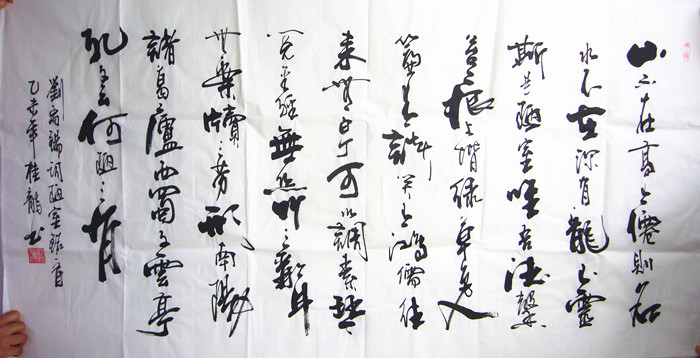 山不在高有僊則名
水不在深有龍則靈
斯是陋室唯吾德馨
苔痕上階綠草色入
簾青談笑有鴻儒往
來無白丁可以調素琴
閱金經無絲竹之亂耳
無案牘之勞形南陽
諸葛廬西蜀子雲亭
孔子云何陋之有
劉禹錫詞陋室銘一首
乙未年桂書